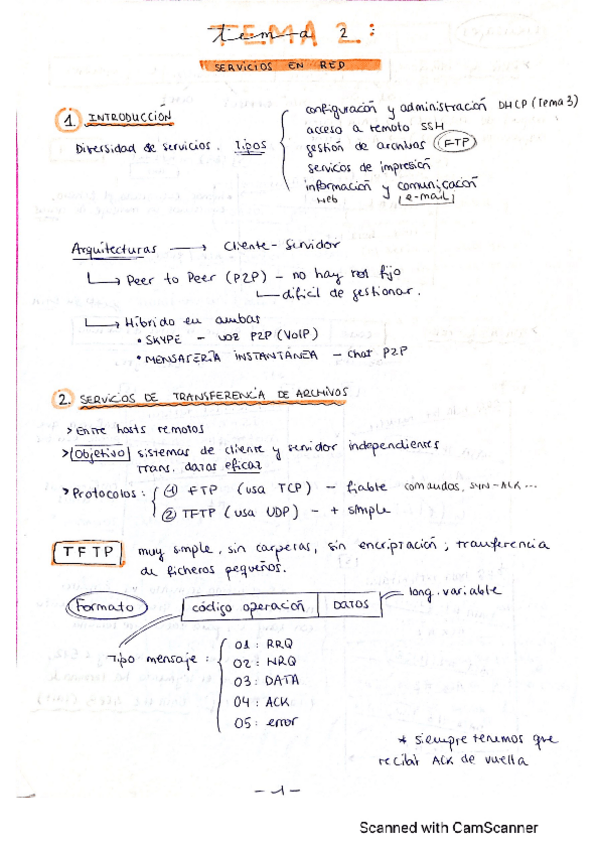 tema 2 :
TEMA 2 :
SERVICIOS EN RED
1. INTRODUCCIÓN
Diversidad de servicios. Tipos
configuración y administración DHCP (Tema 3)
acceso a remoto SSH
gestión de archivos (FTP)
servicios de impresión
información y comunicación
web e-mail
Arquitecturas → Cliente - Servidor
↳ Peer to Peer (P2P) - no hay rol fijo
difícil de gestionar.
↳ Híbrido en ambas
• SKYPE - voz P2P (VoIP)
• MENSAJERÍA INSTANTÁNEA - chat P2P
2. SERVICIOS DE TRANSFERENCIA DE ARCHIVOS
> Entre hosts remotos
> Objetivo sistemas de cliente y servidor independientes
trans. datos eficaz
> Protocolos : ① FTP (usa TCP) - fiable comandos, SYN-ACK...
② TFTP (usa UDP) - + simple
TFTP muy simple, sin carpetas, sin encriptación ; transferencia
de ficheros pequeños.
Formato código operación | DATOS long. variable
Tipo mensaje :
01 : RRQ
02 : WRQ
03 : DATA
04 : ACK
05 : error
* siempre tenemos que
recibir ACK de vuelta
- 1 -
Scanned with CamScanner